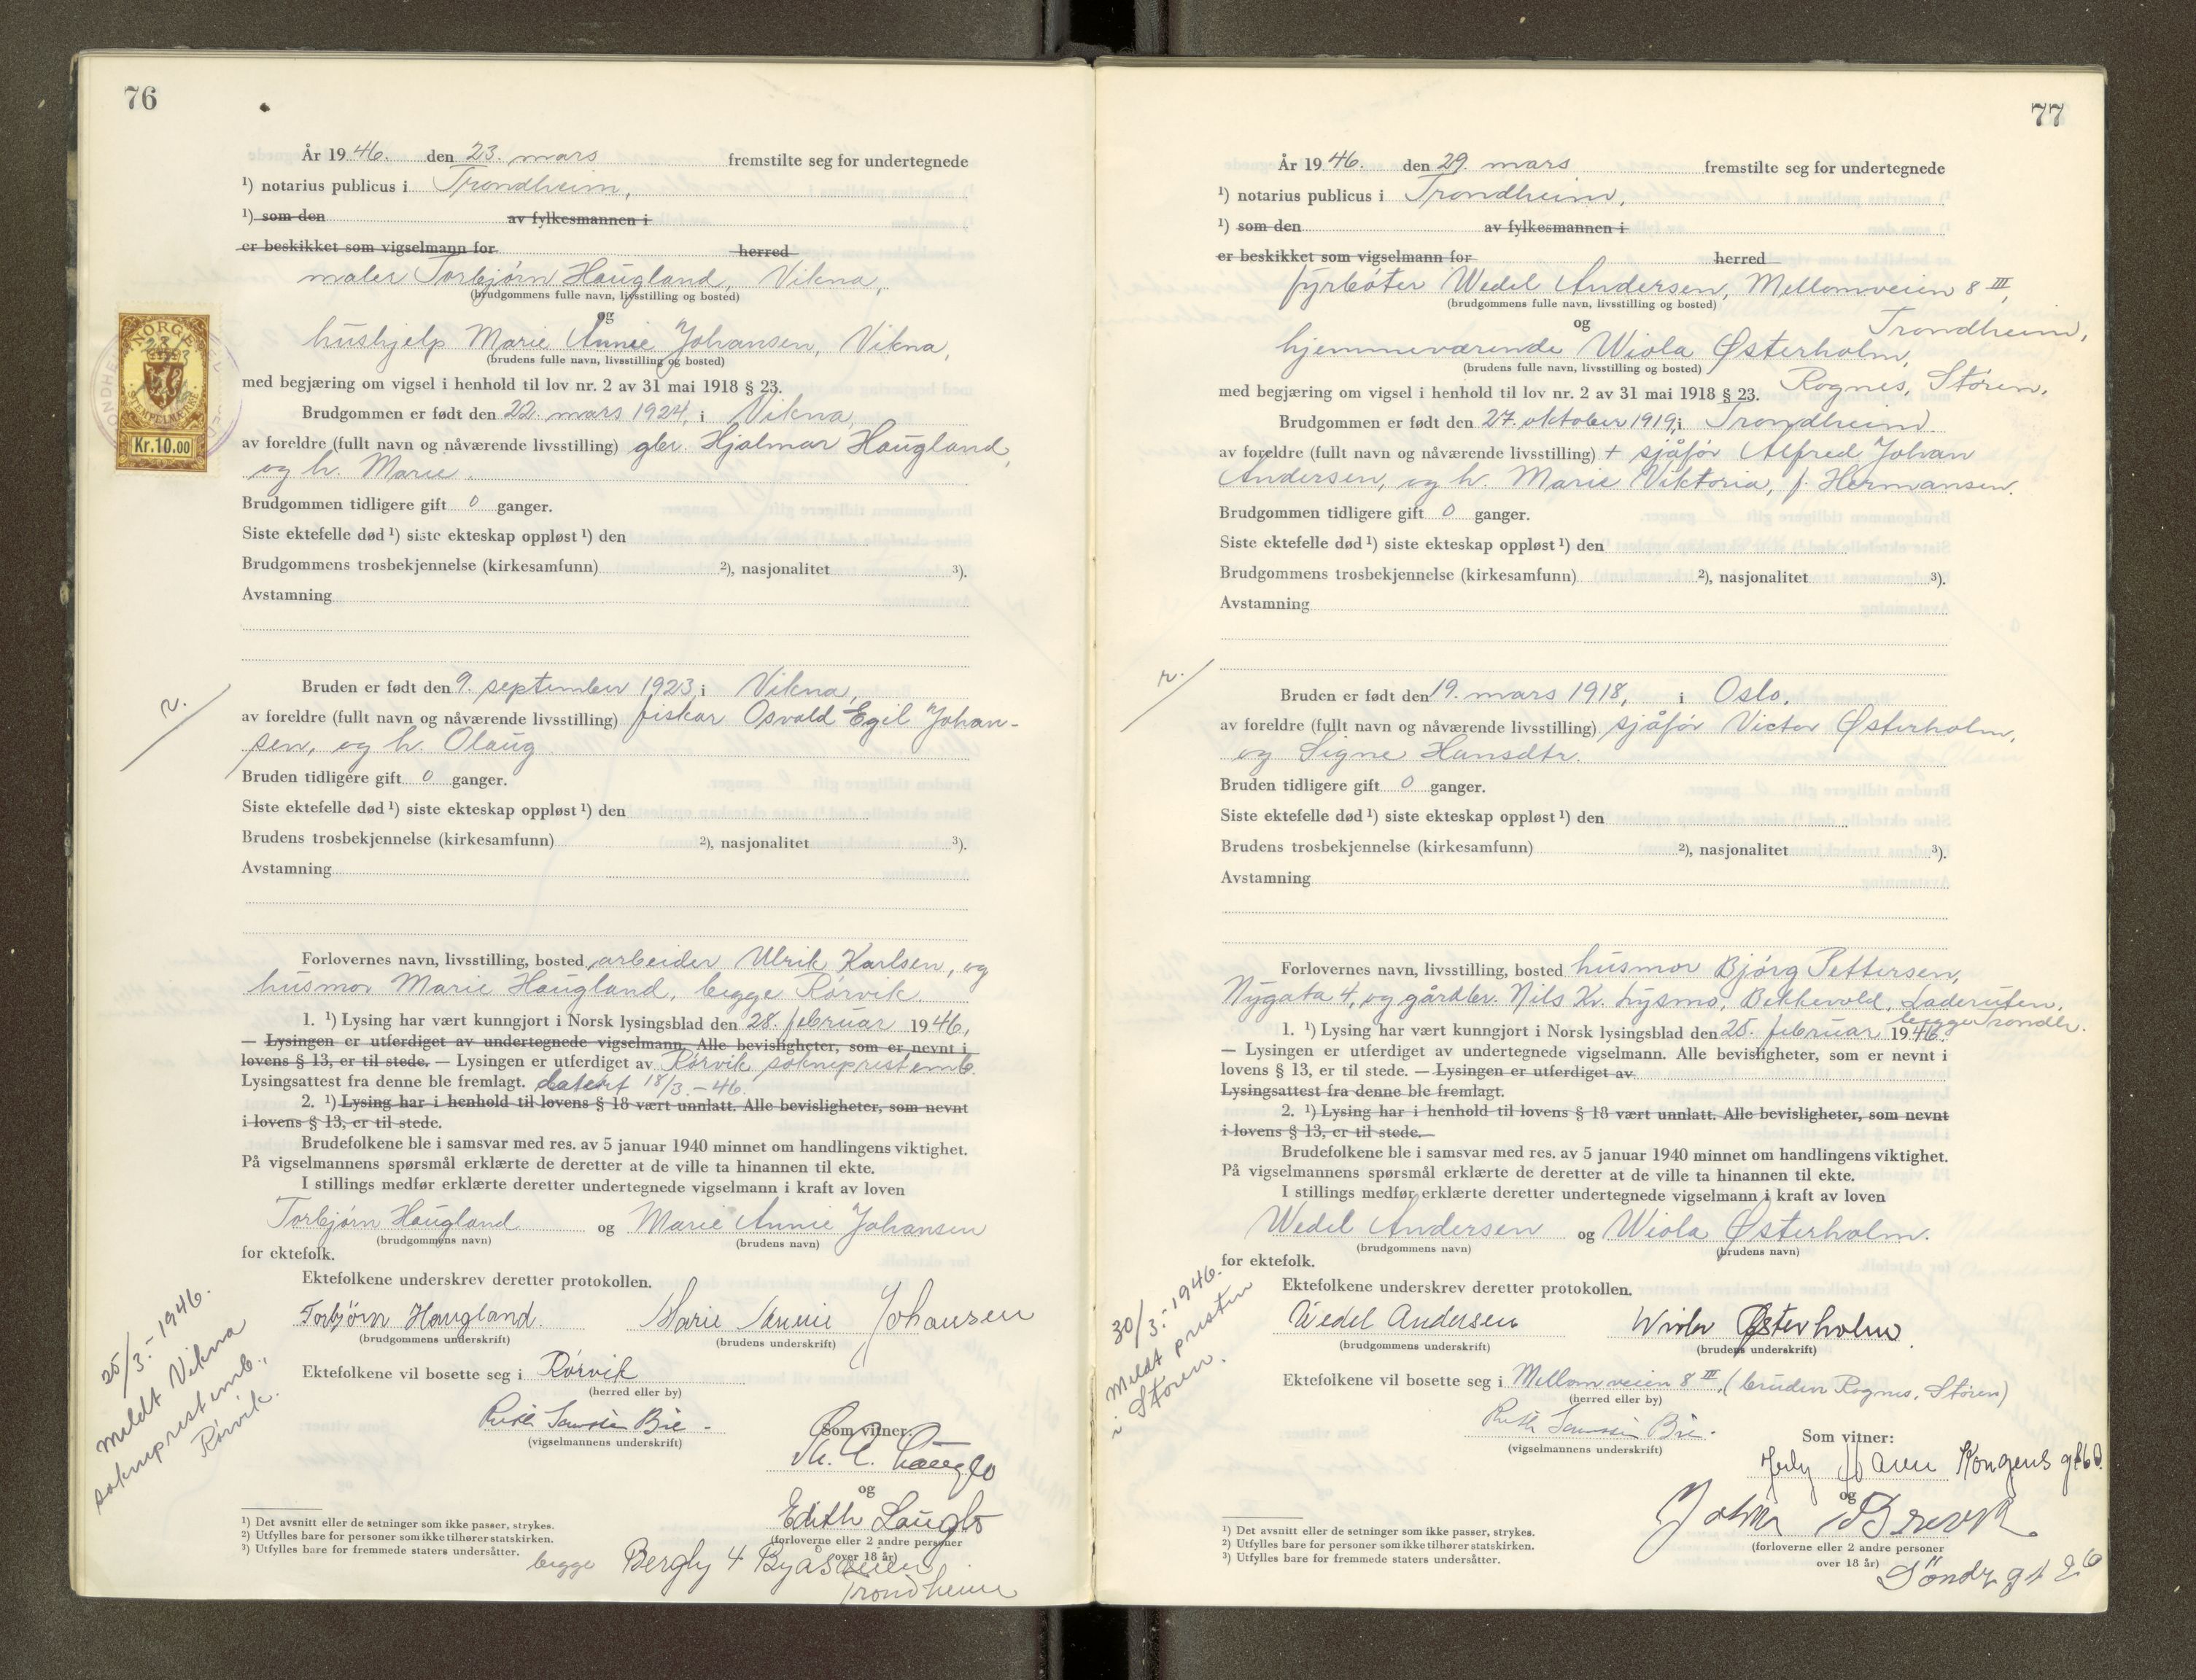 76
År 1946. den 23. mars fremstilte seg for undertegnede
¹) notarius publicus i Trondheim,
¹) som den av fylkesmannen i
er beskikket som vigselmann for herred
maler Torbjørn Haugland, Vikna,
(brudgommens fulle navn, livsstilling og bosted)
og
hushjelp Marie Annie Johansen, Vikna,
(brudens fulle navn, livsstilling og bosted)
med begjæring om vigsel i henhold til lov nr. 2 av 31 mai 1918 § 23.
Brudgommen er født den 22. mars 1924, i Vikna,
av foreldre (fullt navn og nåværende livsstilling) gbr. Hjalmar Haugland,
og h. Marie.
Brudgommen tidligere gift 0 ganger.
Siste ektefelle død ¹) siste ekteskap oppløst ¹) den
Brudgommens trosbekjennelse (kirkesamfunn) ²), nasjonalitet ³).
Avstamning
NORGE
STEMPELMERKE
Kr.10.00
r.
Bruden er født den 9. september 1923, i Vikna,
av foreldre (fullt navn og nåværende livsstilling) fisker Osvald Egil Johan-
sen, og h. Olaug
Bruden tidligere gift 0 ganger.
Siste ektefelle død ¹) siste ekteskap oppløst ¹) den
Brudens trosbekjennelse (kirkesamfunn) ²), nasjonalitet ³).
Avstamning
Forlovernes navn, livsstilling, bosted arbeider Ulrik Karlsen, og
husmor Marie Haugland, begge Rørvik.
1. ¹) Lysing har vært kunngjort i Norsk lysingsblad den 28. februar 1946,
— Lysingen er utferdiget av undertegnede vigselmann. Alle bevisligheter, som er nevnt i
lovens § 13, er til stede. — Lysingen er utferdiget av Rørvik sokneprestemb.
Lysingsattest fra denne ble fremlagt. datert 18/3.-46.
2. ¹) Lysing har i henhold til lovens § 18 vært unnlatt. Alle bevisligheter, som nevnt
i lovens § 13, er til stede.
Brudefolkene ble i samsvar med res. av 5 januar 1940 minnet om handlingens viktighet.
På vigselmannens spørsmål erklærte de deretter at de ville ta hinannen til ekte.
I stillings medfør erklærte deretter undertegnede vigselmann i kraft av loven
Torbjørn Haugland og Marie Annie Johansen
(brudgommens navn) (brudens navn)
for ektefolk.
Ektefolkene underskrev deretter protokollen.
Torbjørn Haugland. Marie Annie Johansen
(brudgommens underskrift) (brudens underskrift)
Ektefolkene vil bosette seg i Rørvik
(herred eller by)
(vigselmannens underskrift)
Som vitner:
og
Edith Lauglo
(forloverne eller 2 andre personer
over 18 år)
begge Bergly 4 Byåsveien
Trondheim
25/3.-1946.
Meldt Vikna
sokneprestemb.,
Rørvik.
¹) Det avsnitt eller de setninger som ikke passer, strykes.
²) Utfylles bare for personer som ikke tilhører statskirken.
³) Utfylles bare for fremmede staters undersåtter.
77
År 1946. den 29. mars fremstilte seg for undertegnede
¹) notarius publicus i Trondheim,
¹) som den av fylkesmannen i
er beskikket som vigselmann for herred
fyrbøter Wedel Andersen, Mellomveien 8 III,
(brudgommens fulle navn, livsstilling og bosted)
og Trondheim,
hjemmeværende Wiola Østerholm,
(brudens fulle navn, livsstilling og bosted)
Rognes, Støren,
med begjæring om vigsel i henhold til lov nr. 2 av 31 mai 1918 § 23.
Brudgommen er født den 27. oktober 1919, i Trondheim
av foreldre (fullt navn og nåværende livsstilling) + sjåfør Alfred Johan
Andersen, og h. Marie Viktoria, f. Hermansen.
Brudgommen tidligere gift 0 ganger.
Siste ektefelle død ¹) siste ekteskap oppløst ¹) den
Brudgommens trosbekjennelse (kirkesamfunn) ²), nasjonalitet ³).
Avstamning
r.
Bruden er født den 19. mars 1918, i Oslo,
av foreldre (fullt navn og nåværende livsstilling) sjåfør Victor Østerholm,
og Signe Hansdtr.
Bruden tidligere gift 0 ganger.
Siste ektefelle død ¹) siste ekteskap oppløst ¹) den
Brudens trosbekjennelse (kirkesamfunn) ²), nasjonalitet ³).
Avstamning
Forlovernes navn, livsstilling, bosted husmor Bjørg Pettersen,
Nygata 4, og gårdbr. Nils Kr. Lysmo, Bekkevold, Laderuten,
begge Trondh.
1. ¹) Lysing har vært kunngjort i Norsk lysingsblad den 25. februar 1946.
— Lysingen er utferdiget av undertegnede vigselmann. Alle bevisligheter, som er nevnt i
lovens § 13, er til stede. — Lysingen er utferdiget av
Lysingsattest fra denne ble fremlagt.
2. ¹) Lysing har i henhold til lovens § 18 vært unnlatt. Alle bevisligheter, som nevnt
i lovens § 13, er til stede.—
Brudefolkene ble i samsvar med res. av 5 januar 1940 minnet om handlingens viktighet.
På vigselmannens spørsmål erklærte de deretter at de ville ta hinannen til ekte.
I stillings medfør erklærte deretter undertegnede vigselmann i kraft av loven
Wedel Andersen og Wiola Østerholm.
(brudgommens navn) (brudens navn)
for ektefolk.
Ektefolkene underskrev deretter protokollen.
Wedel Andersen Wiola Østerholm
(brudgommens underskrift) (brudens underskrift)
Ektefolkene vil bosette seg i Mellomveien 8 III, (bruden Rognes, Støren)
(herred eller by)
(vigselmannens underskrift)
Som vitner:
Kongens gt 60.
og
John
(forloverne eller 2 andre personer
over 18 år)
Söndr gt 26
30/3.-1946.
Meldt presten
i Støren.
¹) Det avsnitt eller de setninger som ikke passer, strykes.
²) Utfylles bare for personer som ikke tilhører statskirken.
³) Utfylles bare for fremmede staters undersåtter.